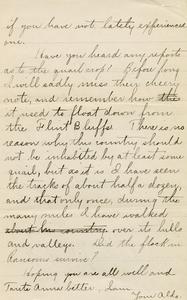 if you have not lately experienced
one.
Have you heard any reports
as to the quail crop? Before long
I will sadly miss they cheery
note, and remember how the
it used to float down from
the Flint Bluffs. There is no
reason why this country should
not be inhabited by at least some
quail, but as it is I have seen
the tracks of about half a dozen,
and that only once, during the
many miles I have walked
about the country over its hills
and valleys. Did the flock in
Ransoms survive?
Hoping you are all well and
Tante Anna better, I am
Your Aldo.